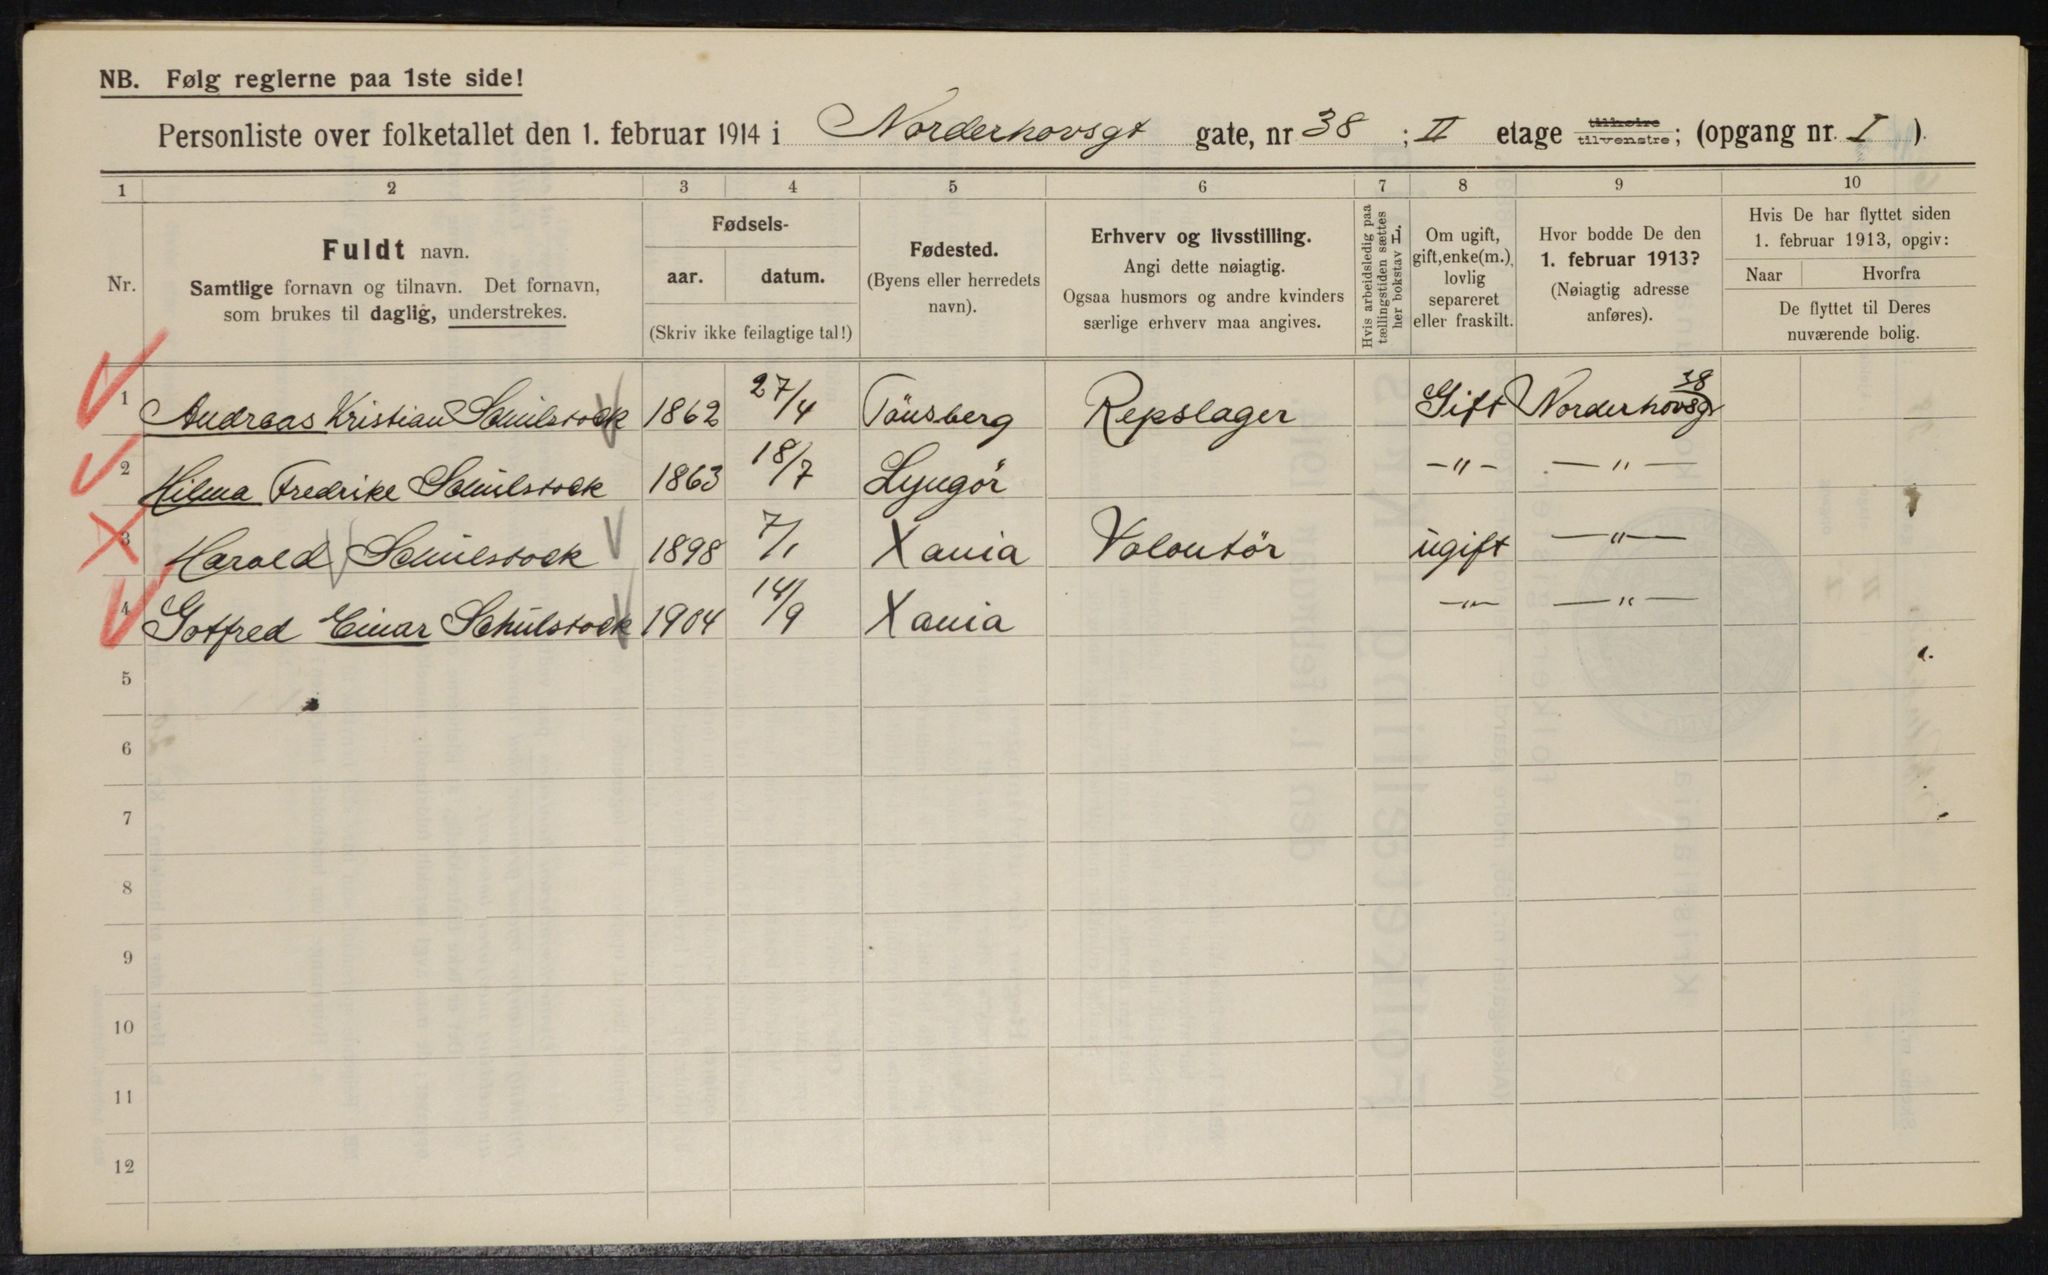 NB. Følg reglerne paa 1ste side!
Personliste over folketallet den 1. februar 1914 i Norderhovsgt gate, nr 38 ; II etage tilhøire tilvenstre; (opgang nr. I ).
1 2 3 4 5 6 7 8 9 10
Nr.
Fuldt navn.
Samtlige fornavn og tilnavn. Det fornavn,
som brukes til daglig, understrekes.
Fødsels-
aar. datum.
(Skriv ikke feilagtige tal!)
Fødested.
(Byens eller herredets
navn).
Erhverv og livsstilling.
Angi dette nøiagtig.
Ogsaa husmors og andre kvinders
særlige erhverv maa angives.
Hvis arbeidsledig paa
tællingstiden sættes
her bokstav L.
Om ugift,
gift, enke(m.),
lovlig
separeret
eller fraskilt.
Hvor bodde De den
1. februar 1913?
(Nøiagtig adresse
anføres).
Hvis De har flyttet siden
1. februar 1913, opgiv:
Naar Hvorfra
De flyttet til Deres
nuværende bolig.
1 Andreas Kristian Schulstock 1862 27/4 Tönsberg Repslager Gift Norderhovsg 38
2 Hilma Fredrike Schulstock 1863 18/7 Lyngör -"- -"-
3 Harald Schulstock 1898 7/1 Xania Volontör ugift -"-
4 Gotfred Einar Schulstock 1904 14/9 Xania -"- -"-
5
6
7
8
9
10
11
12